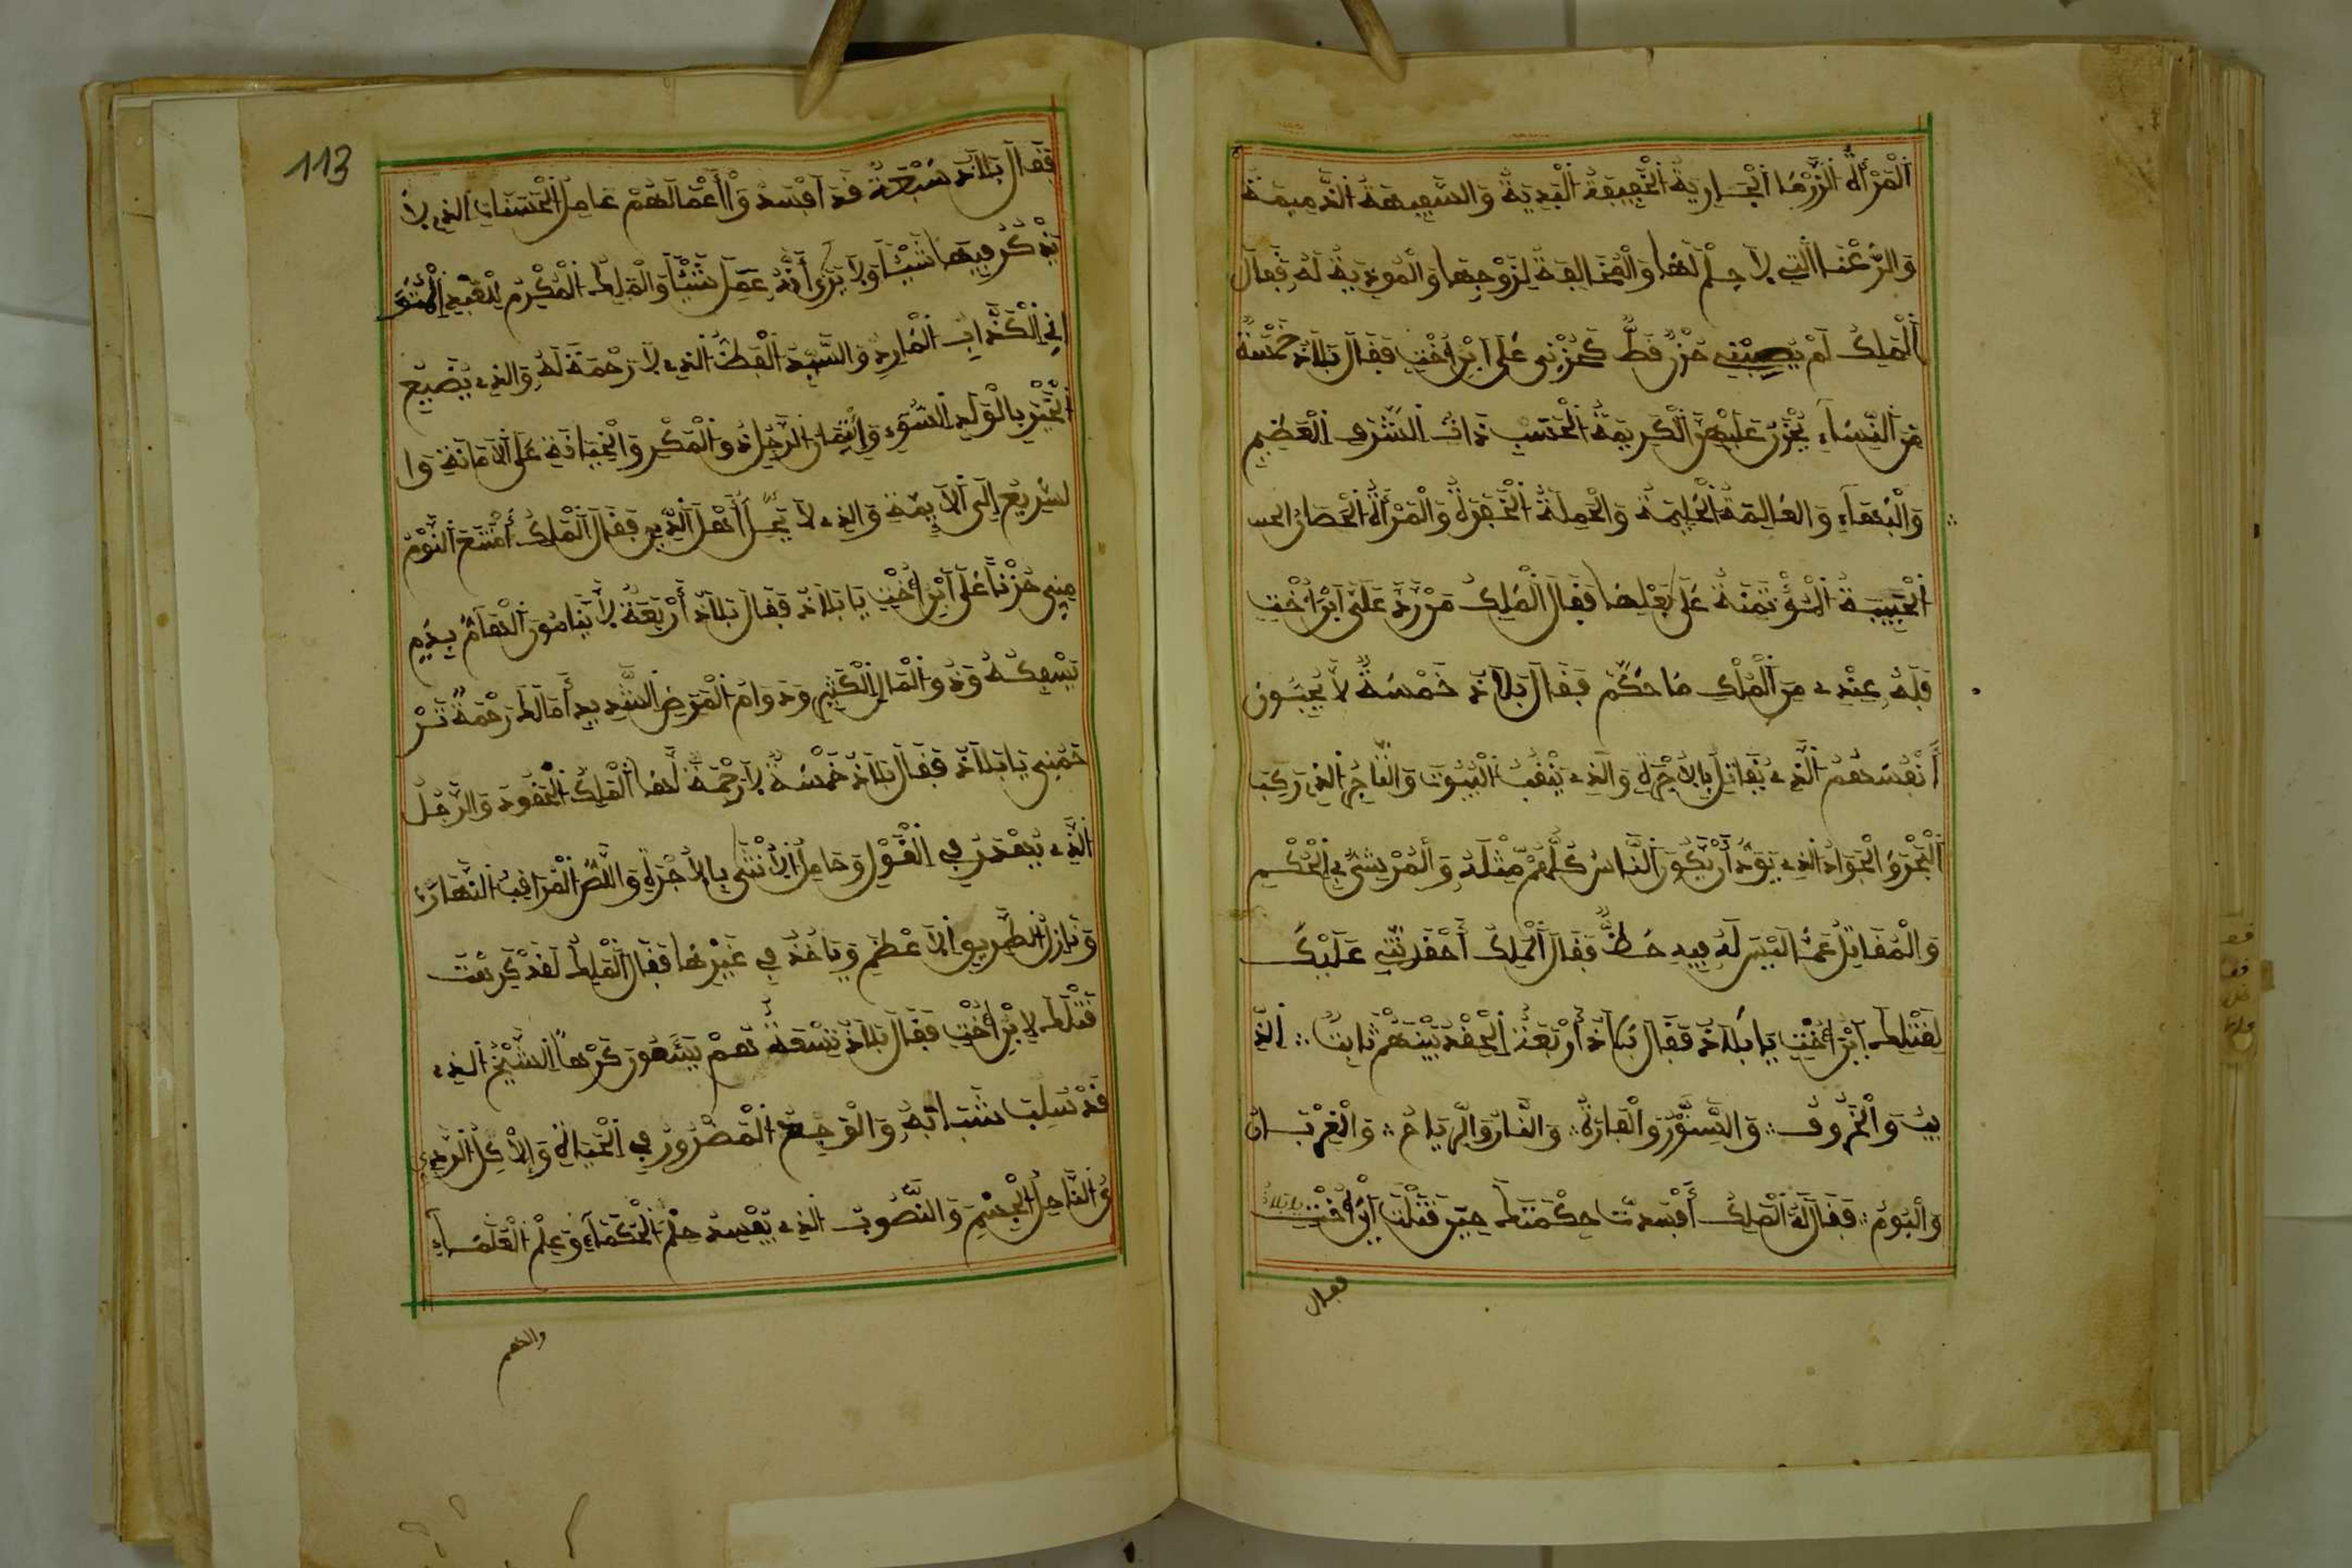 اَلْمَرْأَةُ الزَّرْقَا الْجَارِيَةُ الْخَفِيفَةُ الْبَدِيَةُ وَالسَّفِيهَةُ الذَّمِيمَةُ
وَالرَّعْنَا الَّتِي لَا حِلْمَ لَهَا وَالْمُخَالِفَةُ لِزَوْجِهَا وَالْمُوذِيَةُ لَهُ فَقَالَ
اَلْمَلِكُ لَمْ يُصِيبْنِي حُزْنٌ قَطُّ كَحُزْنِي عَلَى ابْنِ أُخْتِي فَقَالَ بَلَاذ خَمْسَةٌ
مِنَ النِّسَاءِ يُحْزَنُ عَلَيْهِنَّ الْكَرِيمَةُ الْحَسَبِ ذَاتُ الشَّرَفِ الْعَظِيمِ
وَالْبُهَاءِ وَالْعَالِمَةُ الْحَلِيمَةُ وَالْجَمِلَةُ الْخَفِرَةُ وَالْمَرْأَةُ الْحَصَانُ
الْحَبِيبَةُ الْمُؤْتَمَنَةُ عَلَى بَعْلِهَا فَقَالَ الْمَلِكُ مَنْ رَدَّ عَلَيَّ ابْنَ أُخْتِي
فَلَهُ عِنْدِي مِنَ الْمُلْكِ مَا حُكِّمَ فَقَالَ بَلَاذ خَمْسَةٌ لَا يُحِبُّونَ
أَنْفُسَهُمْ الَّذِي يُقَاتِلُ بِالْأُجْرَةِ وَالَّذِي يَنْقُبُ الْبُيُوتَ وَالتَّاجِرُ الَّذِي رَكِبَ
الْبَحْرَ وَالْجَوَادُ الَّذِي يَوَدُّ أَنْ يَكُونَ النَّاسُ كُلُّهُمْ مِثْلَهُ وَالْمُرْتَشِي فِي الْحُكْمِ
وَالْمُقَاتِلُ عَمَّا لَيْسَ لَهُ فِيهِ حَظٌّ فَقَالَ الْمَلِكُ أَحْقَدْتَنِي عَلَيْكَ
لِقَتْلِكَ ابْنَ أُخْتِي يَا بَلَاذ فَقَالَ بَلَاذ أَرْبَعَةٌ الْحِقْدُ بَيْنَهُمْ ثَابِتٌ ∴ الذِّ
يبُ وَالْخَرُوفُ ∴ وَالسِّنَّوْرُ وَالْفَارَةُ ∴ وَالنَّارُ وَالرِّيَاحُ ∴ وَالْغِرْبَانُ
وَالْبُومُ ∴ فَقَالَ لَهُ الْمَلِكُ أَفْسَدْتَ حِكْمَتَكَ حِينَ قَتَلْتَ ابْنَ أُخْتِي يَا بَلَاذ
فقال
113
فَقَالَ بَلَاذ سَبْعَةٌ قَدْ أَفْسَدُوا أَعْمَالَهُمْ عَامِلُ الْحَسَنَاتِ الَّذِي لَا
يَذْكُرُ فِيهَا شَيْئًا وَلَا يَرَى أَنَّهُ عَمِلَ شَيْئًا وَالْمَلِكُ الْمُكْرِمُ لِلْعَبْدِ
الْكَذَّابِ الْمَارِدِ وَالسَّيِّدُ الْفَظُّ الَّذِي لَا رَحْمَةَ لَهُ وَالَّذِي يُضَيِّعُ
الْخَيْرَ بِالْوَلَدِ السُّوءِ وَائْتِمَانُ الرَّجُلِ ذُو الْمَكْرِ وَالْخِيَانَةِ عَلَى الْأَمَانَةِ وَا
لسَّرِيعُ إِلَى الْأَيِمَةِ وَالَّذِي لَا يُجِلُّ أَهْلَ الدِّينِ فَقَالَ الْمَلِكُ امْتَنَعَ النَّوْمُ
مِنِّي حُزْنًا عَلَى ابْنِ أُخْتِي يَا بَلَاذ فَقَالَ بَلَاذ أَرْبَعَةٌ لَا يَنَامُونَ الْهَامُّ بِدَمٍ
يَسْفِكُهُ وَذُو الْمَالِ الْكَثِيرِ وَذُو الْمَرَضِ الشَّدِيدِ أَمَا لَكَ رَحْمَةً تَرْ
حَمُنِي يَا بَلَاذ فَقَالَ بَلَاذ خَمْسَةٌ لَا رَحْمَةَ لَهَا الْمَلِكُ الْحَقُودُ وَالرَّجُلُ
الَّذِي يَغْدُرُ فِي الْقَوْلِ وَحَامِلُ الْأُنْثَى بِالْأُجْرَةِ وَاللِّصُّ الْمُرَاقِبُ النَّهَارَ
وَنَازِلُ الطَّرِيقِ الْأَعْظَمِ وَيَأْخُذُ فِي غَيْرِهَا فَقَالَ الْمَلِكُ لَقَدْ كَرِهْتَ
قَتْلَكَ لِابْنِ أُخْتِي فَقَالَ بَلَاذ تِسْعَةٌ هُمْ يَشْتَهُونَ كَرْهًا الشَّيْخُ الَّذِي
قَدْ سُلِبَ شَبَابُهُ وَالْوَجِعُ الْمَضْرُورُ فِي الْحَيَاةِ وَالْأَكْلُ الرَّدِي
النَّاحِلُ الْجِسْمِ وَالنَّصُوبُ الَّذِي يُفْسِدُ حِلْمَ الْحُكَمَاءِ وَعِلْمَ الْعُلَمَاءِ
والفهم